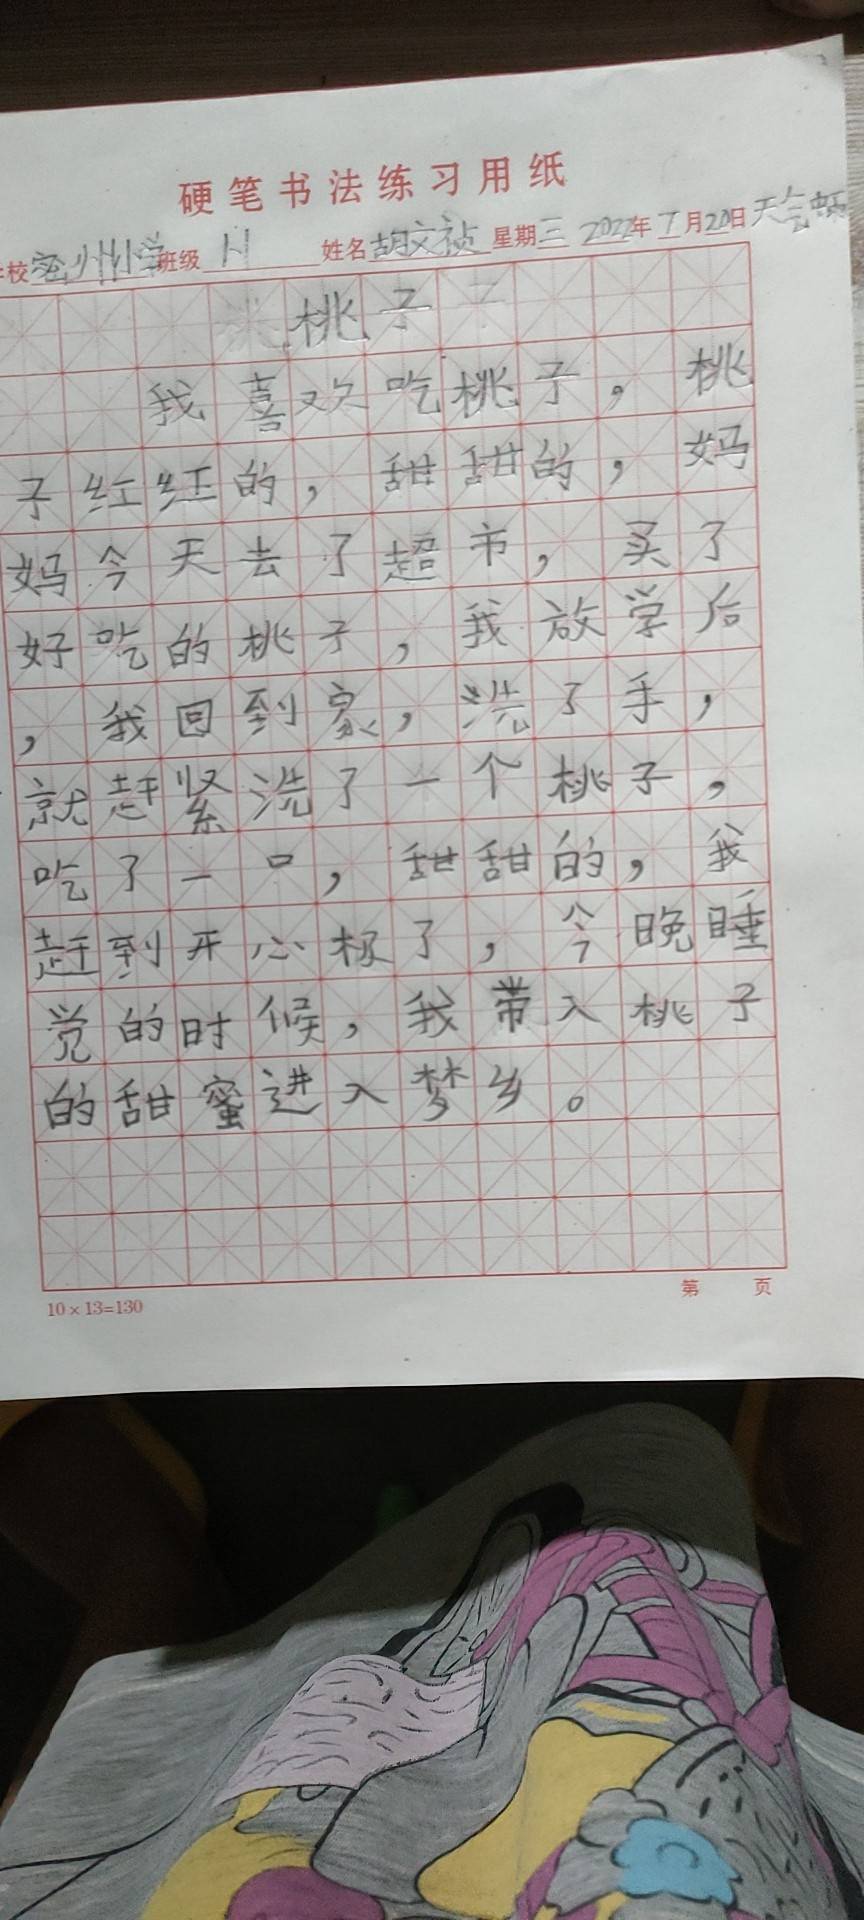 硬笔书法练习用纸
学校密州小学班级1.1 姓名胡文祯 星期三 2022年7月20日天气
桃子
我喜欢吃桃子，桃
子红红的，甜甜的，妈
妈今天去了超市，买了
好吃的桃子，我放学后
，我回到家，洗了手，
就赶紧洗了一个桃子，
吃了一口，甜甜的，我
赶到开心极了，今晚睡
觉的时候，我带入桃子
的甜蜜进入梦乡。
第 页
10×13=130